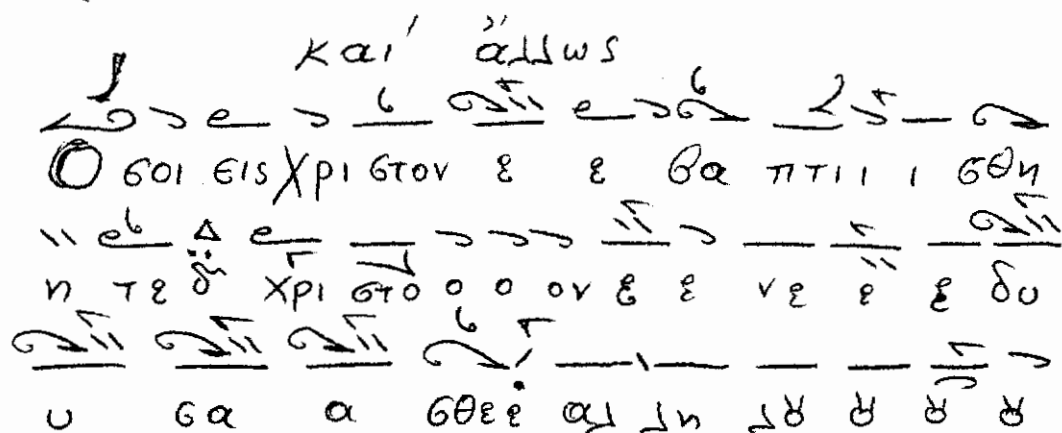 καί ἄλλως
Ο σοι εις Χρι στον ε ε βα πτι ι ι σθη
η τε δ Χρι στο ο ο ον ε ε νε ε ε δυ
υ σα α σθεε αλ λη λȣ ȣ ȣ ȣ